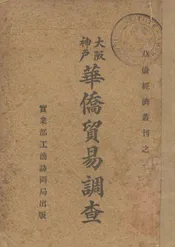 京滬經濟叢刊之
大阪
神戶
華僑貿易調查
實業部工商訪問局出版